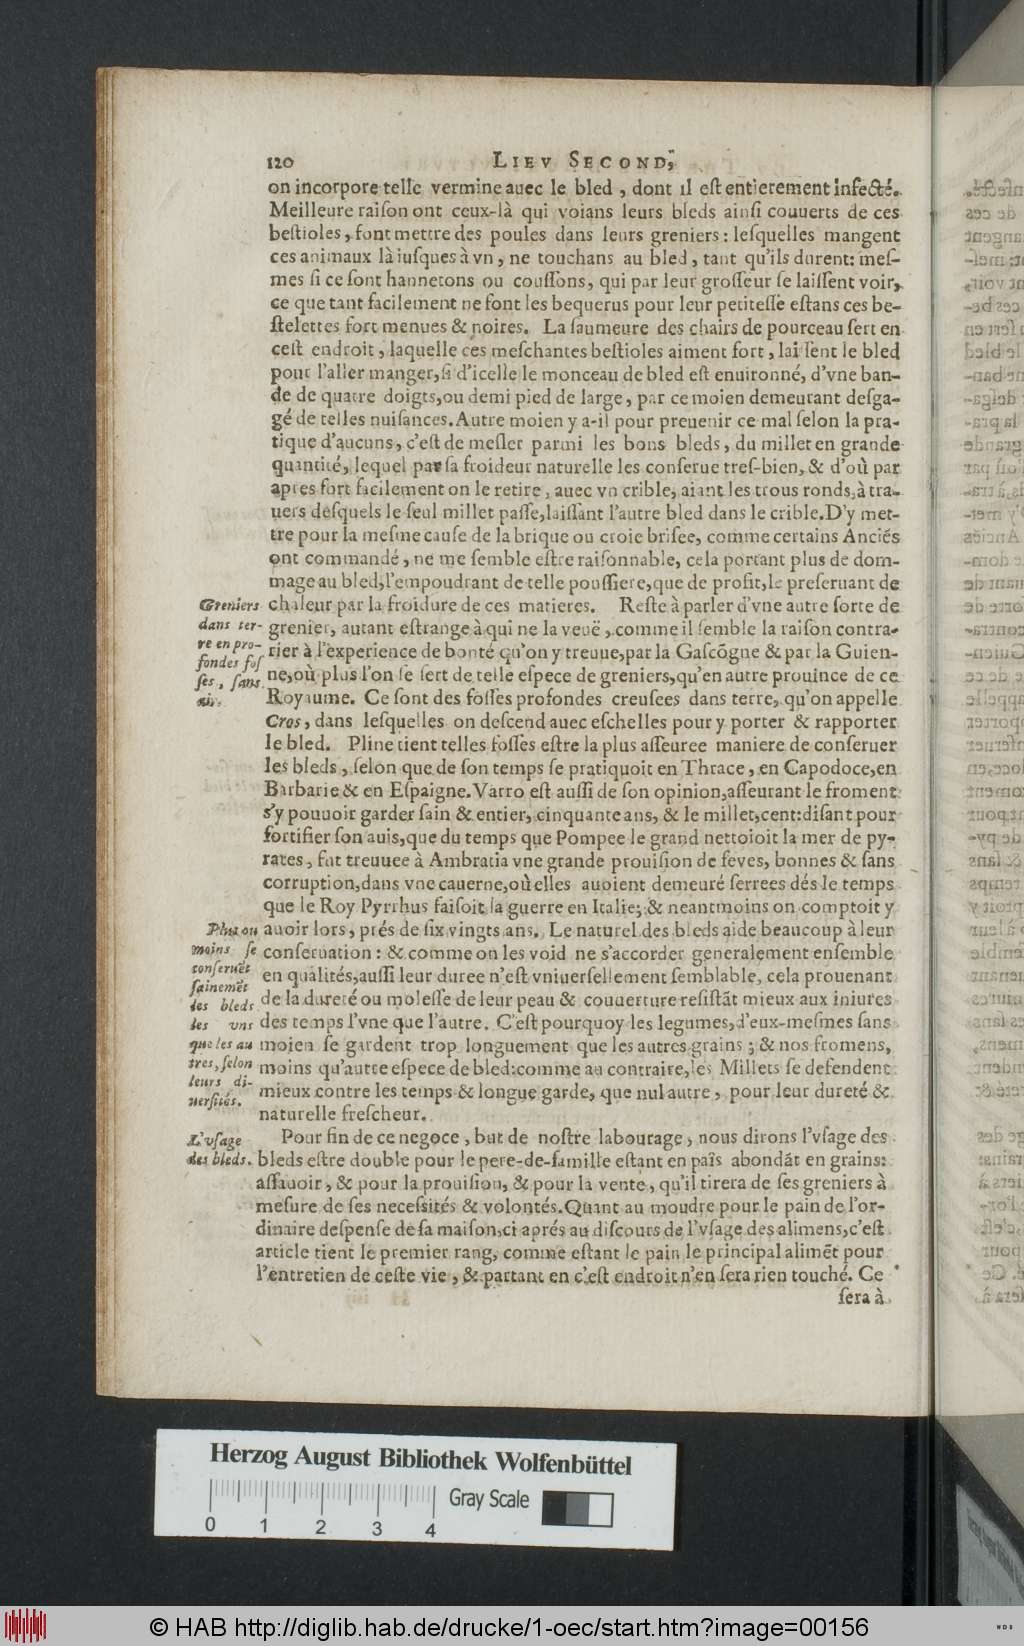 120 LIEV SECOND,
on incorpore telle vermine auec le bled , dont il eſt entierement infecté.
Meilleure raiſon ont ceux-là qui voians leurs bleds ainſi couuerts de ces
beſtioles, font mettre des poules dans leurs greniers : leſquelles mangent
ces animaux là iuſques à vn , ne touchans au bled , tant qu'ils durent: meſ-
mes ſi ce ſont hannetons ou couſſons, qui par leur groſſeur ſe laiſſent voir,
ce que tant facilement ne font les bequerus pour leur petiteſſe eſtans ces be-
ſtelettes fort menues & noires. La ſaumeure des chairs de pourceau ſert en
ceſt endroit , laquelle ces meſchantes beſtioles aiment fort , laiſſent le bled
pour l'aller manger, ſi d'icelle le monceau de bled eſt enuironné, d'vne ban-
de de quatre doigts, ou demi pied de large , par ce moien demeurant deſga-
gé de telles nuiſances. Autre moien y a-il pour preuenir ce mal ſelon la pra-
tique d'aucuns, c'eſt de meſler parmi les bons bleds , du millet en grande
quantité, lequel par ſa froideur naturelle les conſerue treſ-bien, & d'où par
apres fort facilement on le retire , auec vn crible, aiant les trous ronds, à tra-
uers deſquels le ſeul millet paſſe, laiſſant l'autre bled dans le crible. D'y met-
tre pour la meſme cauſe de la brique ou croie briſee, comme certains Anciẽs
ont commandé , ne me ſemble eſtre raiſonnable, cela portant plus de dom-
mage au bled, l'empoudrant de telle pouſſiere, que de profit, le preſeruant de
Greniers chaleur par la froidure de ces matieres. Reſte à parler d'vne autre ſorte de
dans ter- grenier, autant eſtrange à qui ne la veuë , comme il ſemble la raiſon contra-
re en pro- rier à l'experience de bonté qu'on y treuue, par la Gaſcõgne & par la Guien-
fondes foſ
ſes, ſans ne, où plus l'on ſe ſert de telle eſpece de greniers, qu'en autre prouince de ce
air. Royaume. Ce ſont des foſſes profondes creuſees dans terre, qu'on appelle
Cros, dans leſquelles on deſcend auec eſchelles pour y porter & rapporter
le bled. Pline tient telles foſſes eſtre la plus aſſeuree maniere de conſeruer
les bleds , ſelon que de ſon temps ſe pratiquoit en Thrace , en Capodoce, en
Barbarie & en Eſpaigne. Varro eſt auſſi de ſon opinion, aſſeurant le froment
s'y pouuoir garder ſain & entier, cinquante ans, & le millet, cent: diſant pour
fortifier ſon auis, que du temps que Pompee le grand nettoioit la mer de py-
rates , fut treuuee à Ambratia vne grande prouiſion de feves, bonnes & ſans
corruption, dans vne cauerne, où elles auoient demeuré ſerrees dés le temps
que le Roy Pyrrhus faiſoit la guerre en Italie; & neantmoins on comptoit y
Plus ou auoir lors , prés de ſix vingts ans. Le naturel des bleds aide beaucoup à leur
moins ſe conſeruation : & comme on les void ne s'accorder generalement enſemble
conſeruẽt
ſainemẽt en qualités, auſſi leur duree n'eſt vniuerſellement ſemblable, cela prouenant
les bleds de la dureté ou moleſſe de leur peau & couuerture reſiſtãt mieux aux iniures
les vns des temps l'vne que l'autre. C'eſt pourquoy les legumes, d'eux-meſmes ſans
que les au moien ſe gardent trop longuement que les autres grains ; & nos fromens,
tres, ſelon moins qu'autre eſpece de bled: comme au contraire, les Millets ſe defendent
leurs di- mieux contre les temps & longue garde, que nul autre , pour leur dureté &
uerſités. naturelle freſcheur.
L'vſage Pour fin de ce negoce , but de noſtre labourage , nous dirons l'vſage des
des bleds. bleds eſtre double pour le pere-de-famille eſtant en païs abondãt en grains:
aſſauoir , & pour la prouiſion, & pour la vente , qu'il tirera de ſes greniers à
meſure de ſes neceſſités & volontés. Quant au moudre pour le pain de l'or-
dinaire deſpenſe de ſa maiſon, ci aprés au diſcours de l'vſage des alimens, c'eſt
article tient le premier rang, comme eſtant le pain le principal alimẽt pour
l'entretien de ceſte vie , & partant en c'eſt endroit n'en ſera rien touché. Ce
ſera à
Herzog August Bibliothek Wolfenbüttel
Gray Scale
0 1 2 3 4
© HAB http://diglib.hab.de/drucke/1-oec/start.htm?image=00156